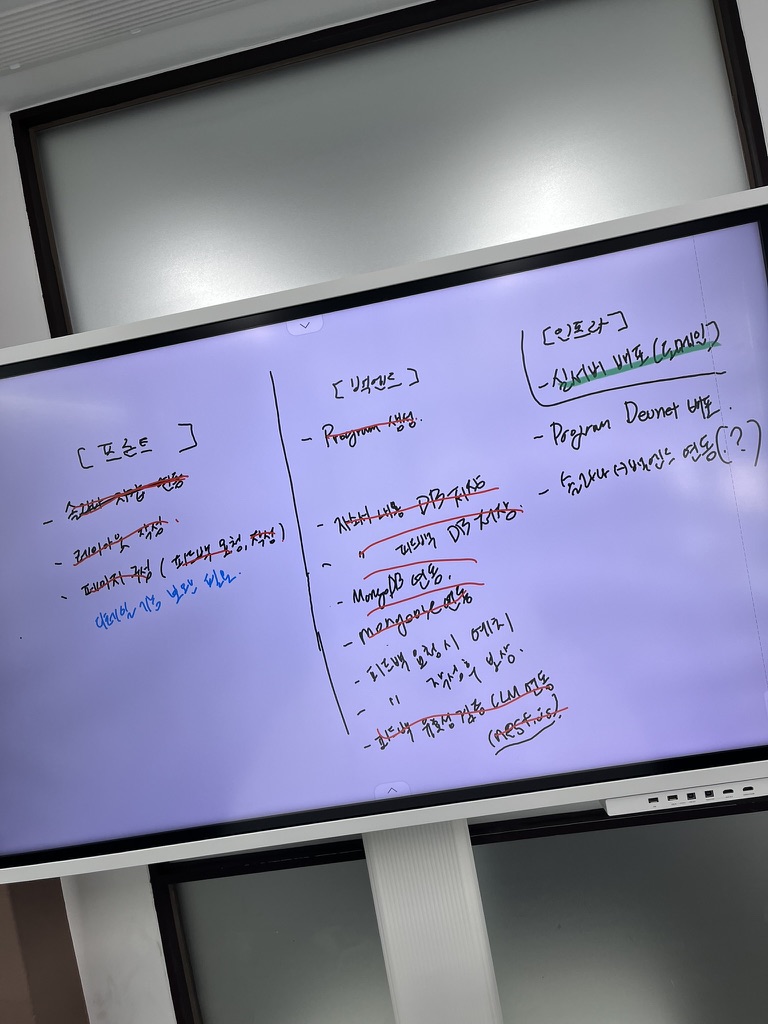 [프론트]
- 솔라나 지갑 연동
- 레이아웃 작성.
- 페이지 구성 (피드백 요청, 작성)
디테일 기능 보완 필요.
[백엔드]
- Program 생성.
- 자소서 내용 DB 저장
- " 피드백 DB 저장.
- MongoDB 연동.
- mongoose 연동
- 피드백 요청시 예치
- " 작성후 보상.
- 피드백 유효성 검증 LLM 연동
(nest.js)
[인프라]
- 실서버 배포 (도메인)
- Program Devnet 배포.
- 솔라나 서버 백엔드 연동 (?)